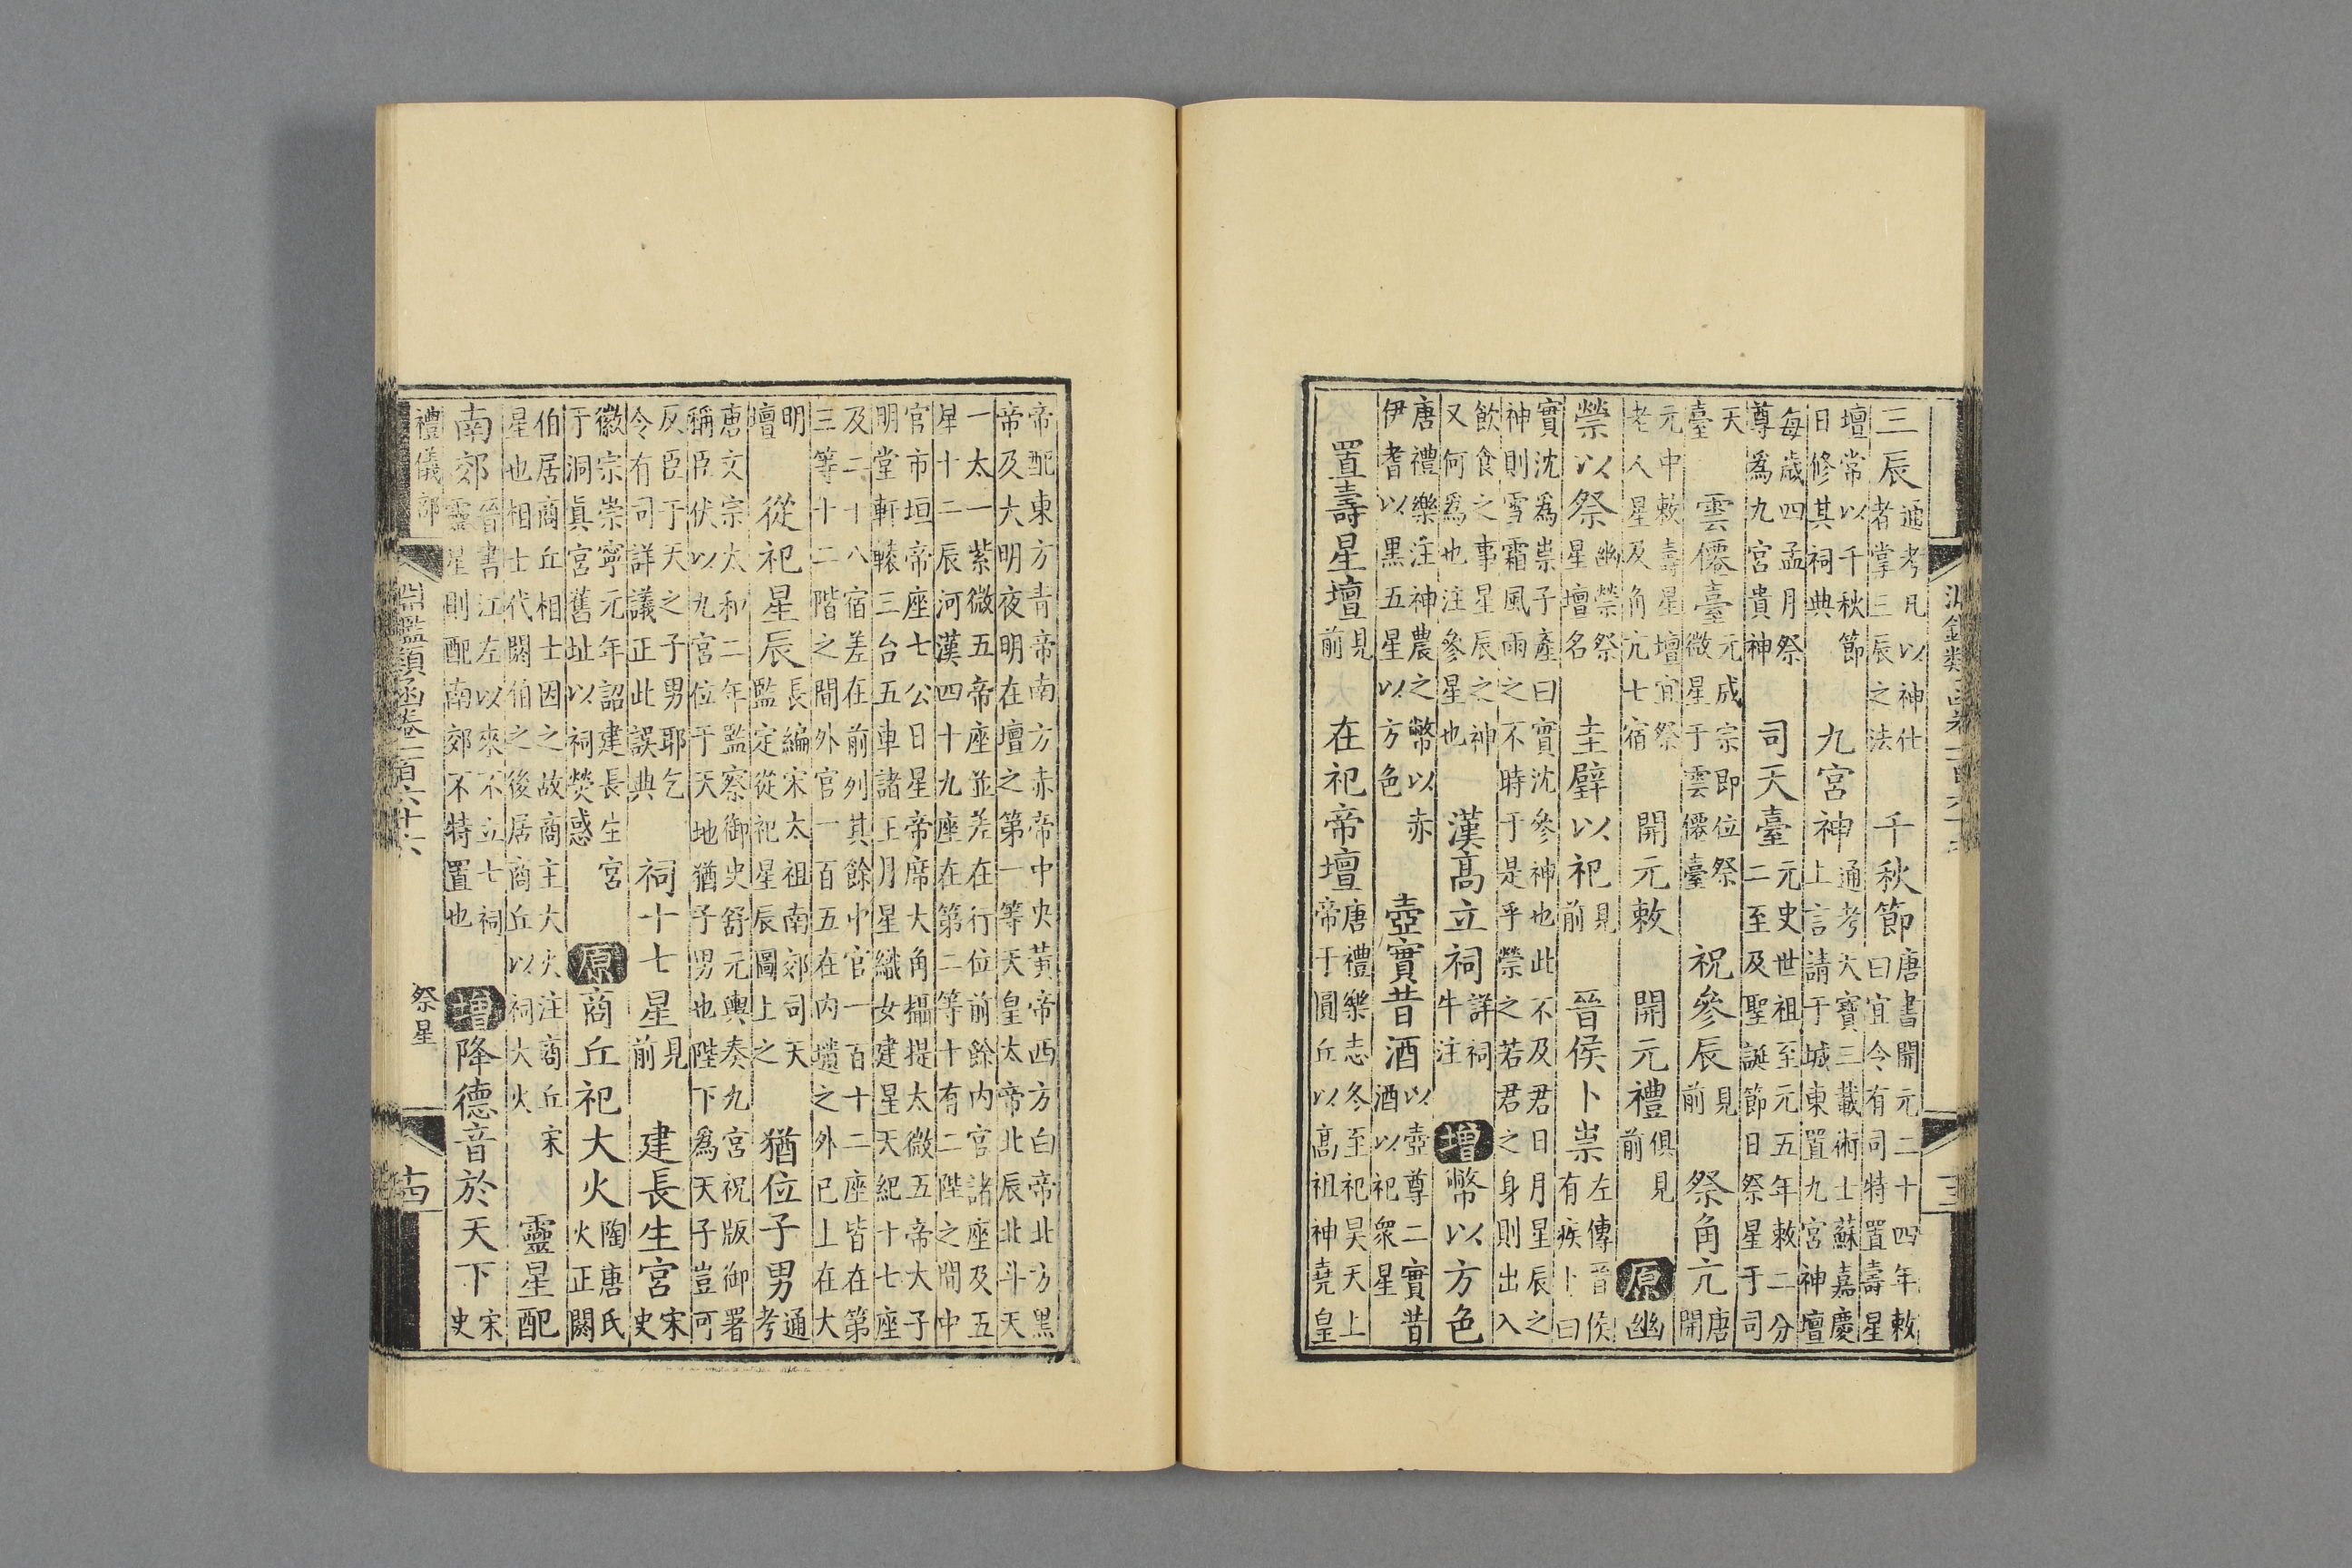 三辰通考凡以神仕者掌三辰之法　千秋節唐書開元二十四年敕曰宜令有司特置壽星
壇常以千秋節日修其祠典　九宮神通考天寶三載術士蘇嘉慶上言請于城東置九宮神壇
每歲四孟月祭尊爲九宮貴神　司天臺元史世祖至元五年敕二分二至及聖誕節日祭星于司
天臺　雲僊臺元成宗即位祭微星于雲僊臺　祝參辰見前　祭角亢唐開
元中敕壽星壇宜祭老人星及角亢七宿　開元敕　開元禮俱見前　原幽
禜以祭幽禜祭星壇名　圭璧以祀見前　晉侯卜祟左傳晉侯有疾卜曰
實沈爲祟子產曰實沈參神也此不及君日月星辰之神則雪霜風雨之不時于是乎禜之若君之身則出入
飲食之事星辰之神又何爲也注參星也　漢高立祠詳祠牛注　增幣以方色
唐禮樂注神農之幣以赤伊耆以黑五星以方色　壺實昔酒以壺尊二實昔酒以祀衆星
置壽星壇見前　在祀帝壇唐禮樂志冬至祀昊天上帝于圓丘以高祖神堯皇
帝配東方青帝南方赤帝中央黃帝西方白帝北方黑帝及大明夜明在壇之第一等天皇太帝北辰北斗天
一太一紫微五帝座並差在行位前餘内宮諸座及五星十二辰河漢四十九座在第二等十有二陛之間中
官市垣帝座七公日星帝席大角攝提太微五帝太子明堂軒轅三台五車諸王月星織女建星天紀十七座
及二十八宿差在前列其餘中官一百十二座皆在第三等十二階之間外官一百五在内壝之外已上在大
明壇　從祀星辰長編宋太祖南郊司天監定從祀星辰圖上之　猶位子男通考
唐文宗太和二年監察御史舒元輿奏九宮祝版御署稱臣伏以九宮位于天地猶子男也陛下爲天子豈可
反臣于天之子男耶乞令有司詳議正此誤典　祠十七星見前　建長生宮宋史
徽宗崇寧元年詔建長生宮于洞眞宮舊址以祠熒惑　原商丘祀大火陶唐氏火正閼
伯居商丘相士因之故商主大火注商丘宋星也相士代閼伯之後居商丘以祠大火　靈星配
南郊晉書江左以來不立七祠靈星則配南郊不特置也　增降德音於天下宋史
禮儀部　祭星
淵鑑類函卷一百六十六　十四